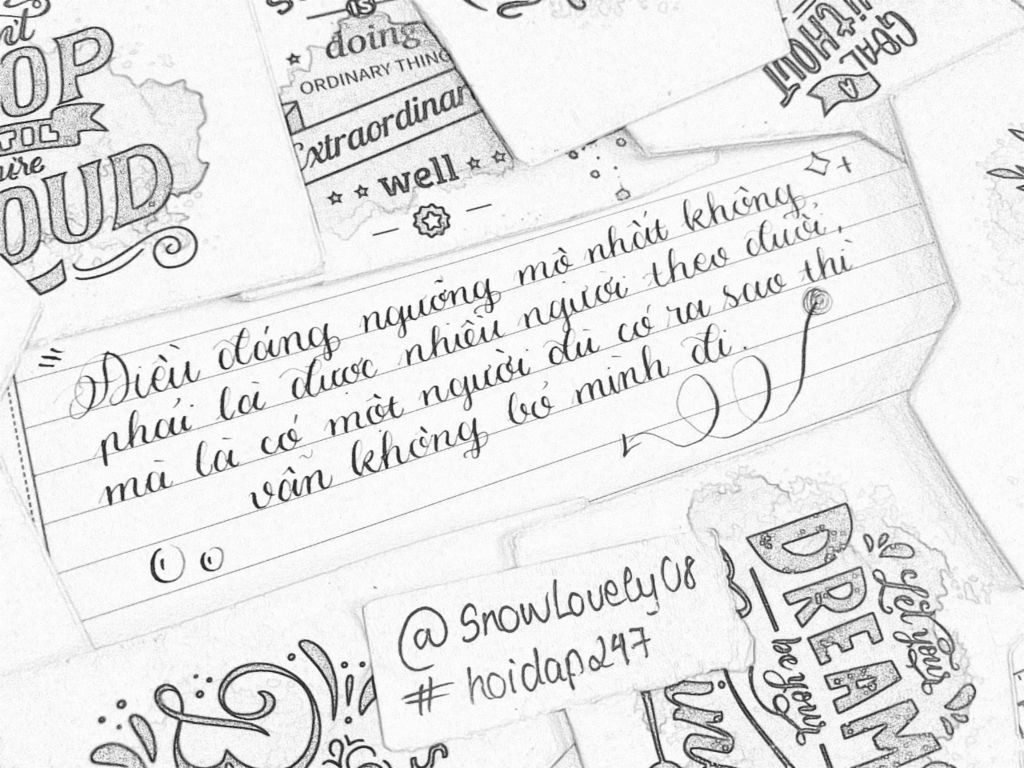 OP
TIL
OUD
is
doing
ORDINARY THING
Extraordinar
well
GOAL
WITHOUT
Điều đáng ngưỡng mộ nhất không
phải là được nhiều người theo đuổi,
mà là có một người dù có ra sao thì
vẫn không bỏ mình đi.
@SnowLovely08
#hoidap247
Let your
DREAM
be your
in